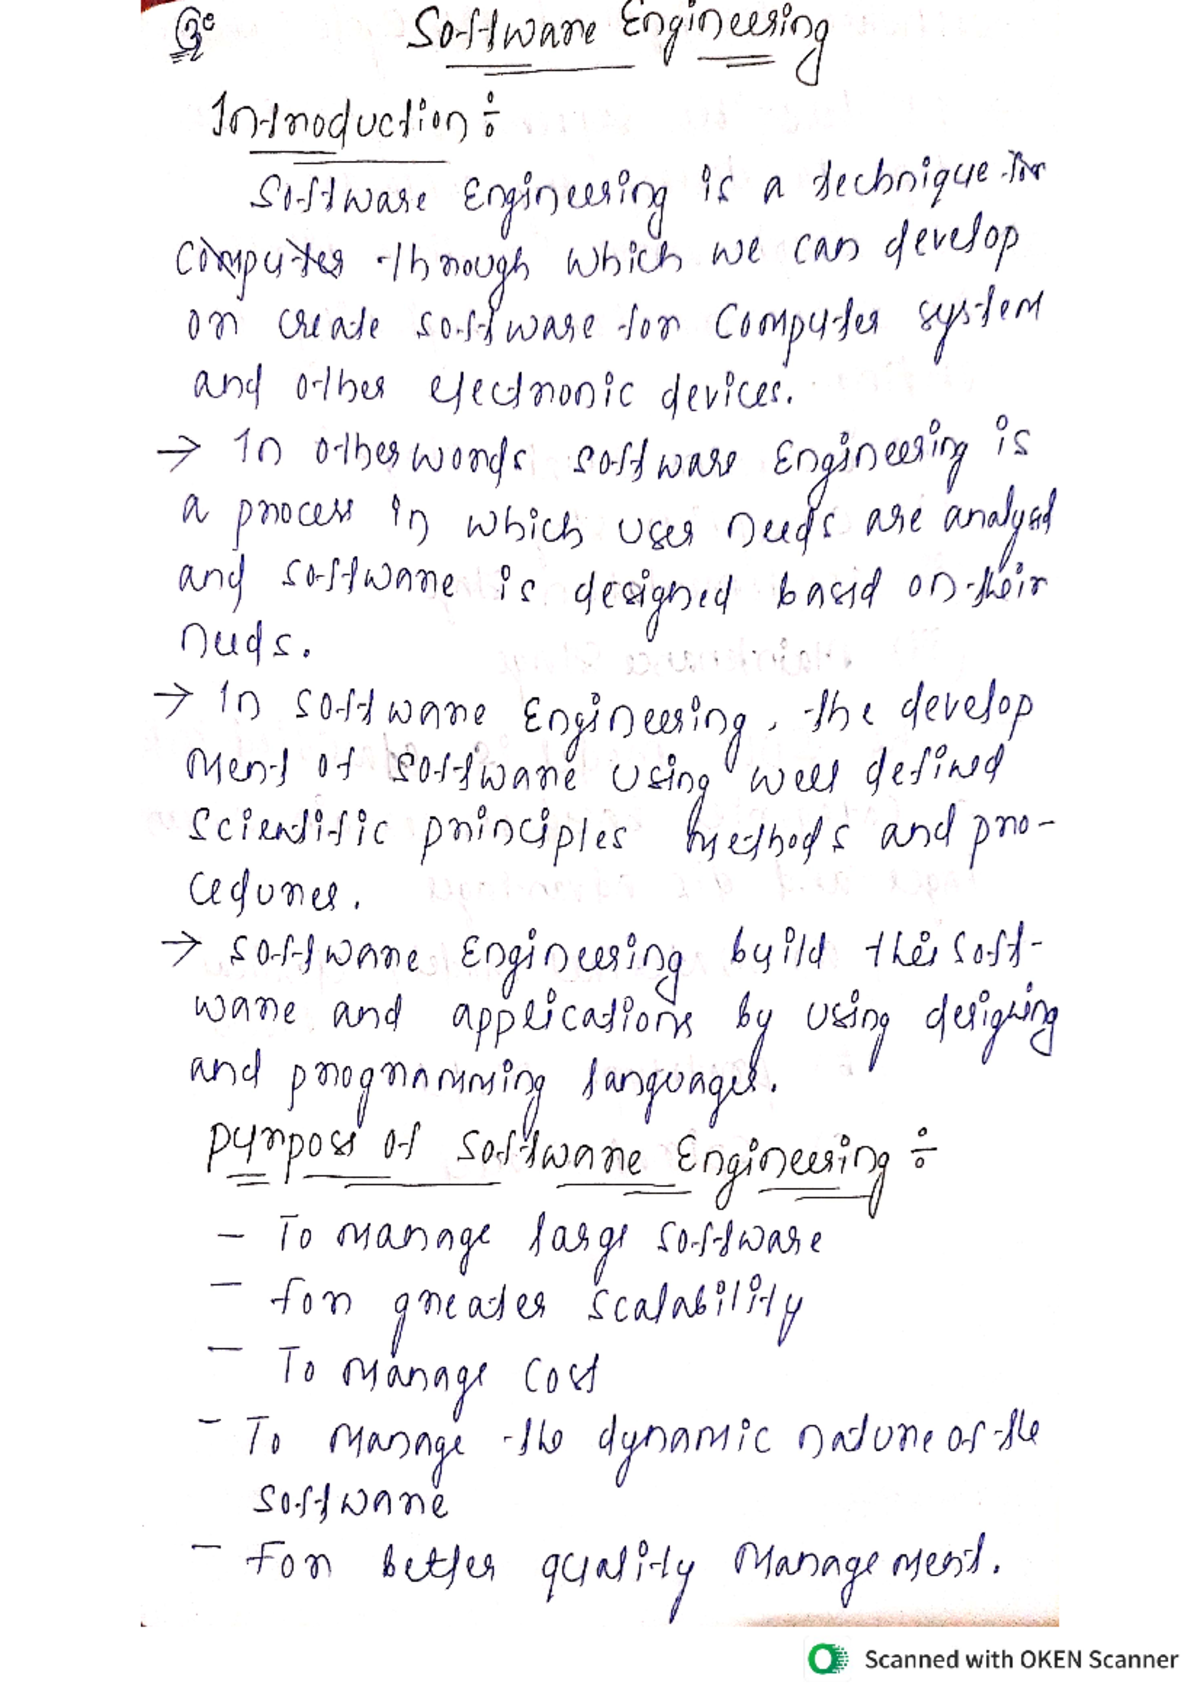 Software Engineering
Introduction :
Software Engineering is a technique for
Computer through which we can develop
or create software for Computer system
and other electronic devices.
→ In other words software Engineering is
a process in which user needs are analysed
and software is designed based on their
needs.
→ In software Engineering, the develop
ment of software using well defined
scientific principles methods and pro-
cedures.
→ software Engineering build their soft-
ware and applications by using designing
and programming languages.
purpose of software Engineering :
- To manage large software
- for greater scalability
- To manage cost
- To manage the dynamic nature of the
software
- for better quality management.
Scanned with OKEN Scanner